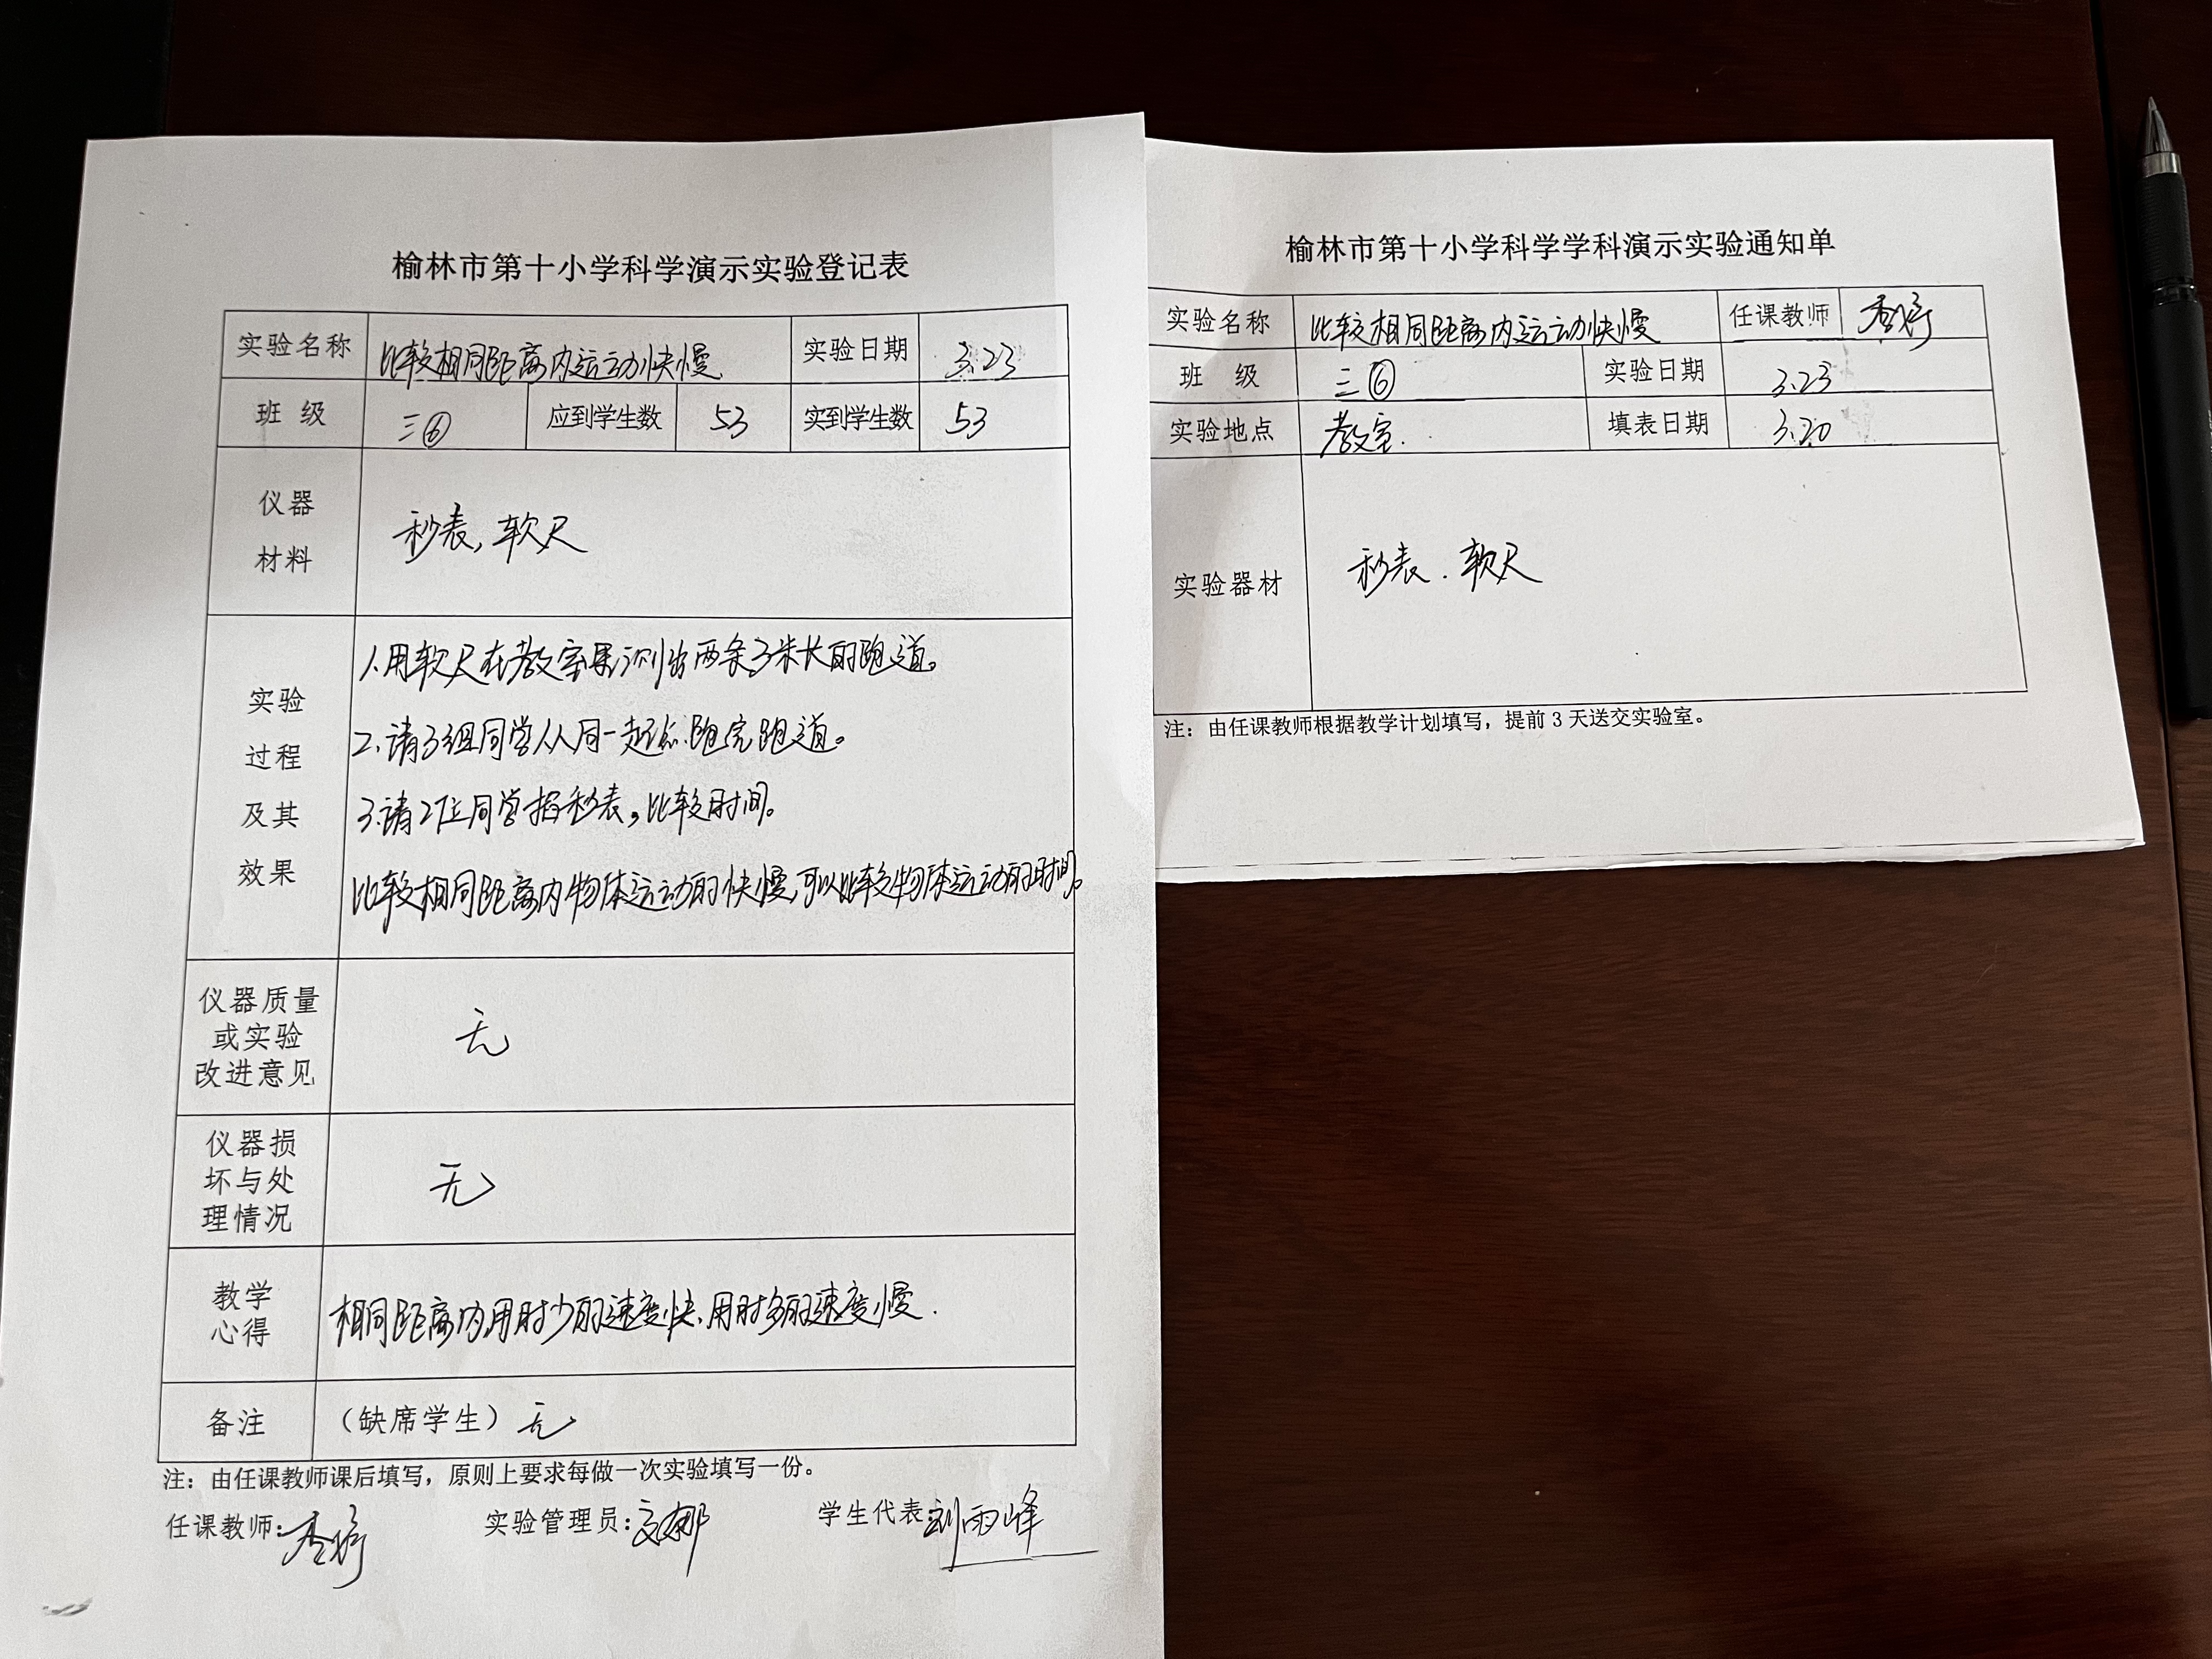 榆林市第十小学科学演示实验登记表
实验名称 比较相同距离内运动快慢 实验日期 3.23
班 级 三⑥ 应到学生数 53 实到学生数 53
仪器
材料
秒表,软尺
实验
过程
及其
效果
1.用软尺在教室里测出两条3米长的跑道。
2.请3组同学从同一起点跑完跑道。
3.请2位同学掐秒表,比较时间。
比较相同距离内物体运动的快慢,可以比较物体运动的时间。
仪器质量
或实验
改进意见
无
仪器损
坏与处
理情况
无
教学
心得
相同距离内,用时少的速度快,用时多的速度慢.
备注 (缺席学生)无
注:由任课教师课后填写,原则上要求每做一次实验填写一份。
任课教师: 实验管理员: 学生代表:刘雨峰
榆林市第十小学科学学科演示实验通知单
实验名称 比较相同距离内运动快慢 任课教师
班 级 三⑥ 实验日期 3.23
实验地点 教室. 填表日期 3.20
实验器材 秒表.软尺
注:由任课教师根据教学计划填写,提前3天送交实验室。